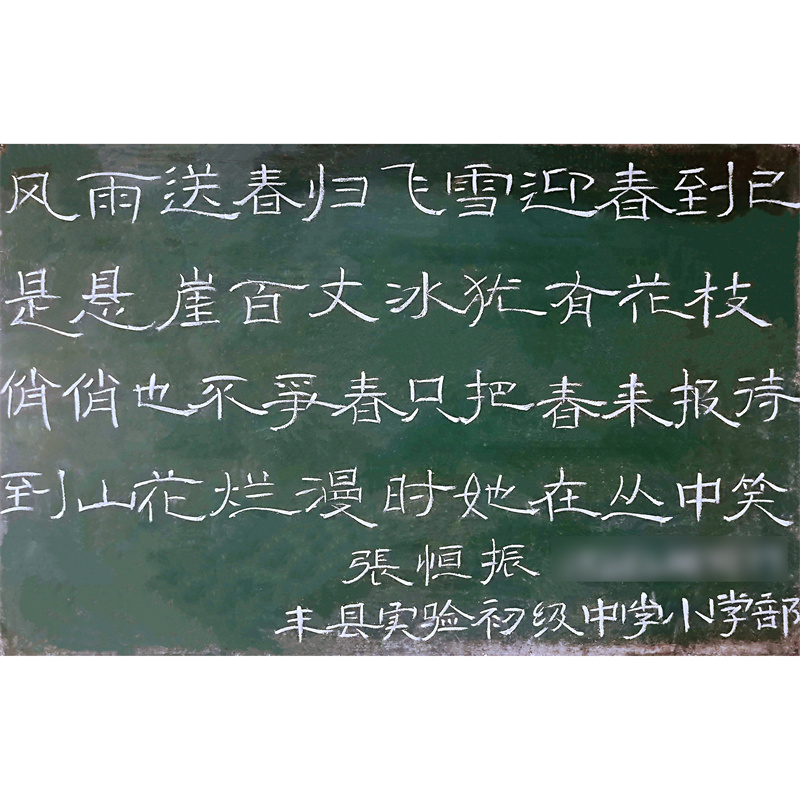 风雨送春归飞雪迎春到已
是悬崖百丈冰犹有花枝
俏俏也不爭春只把春来报待
到山花烂漫时她在丛中笑
張恒振
丰县实验初级中学小学部